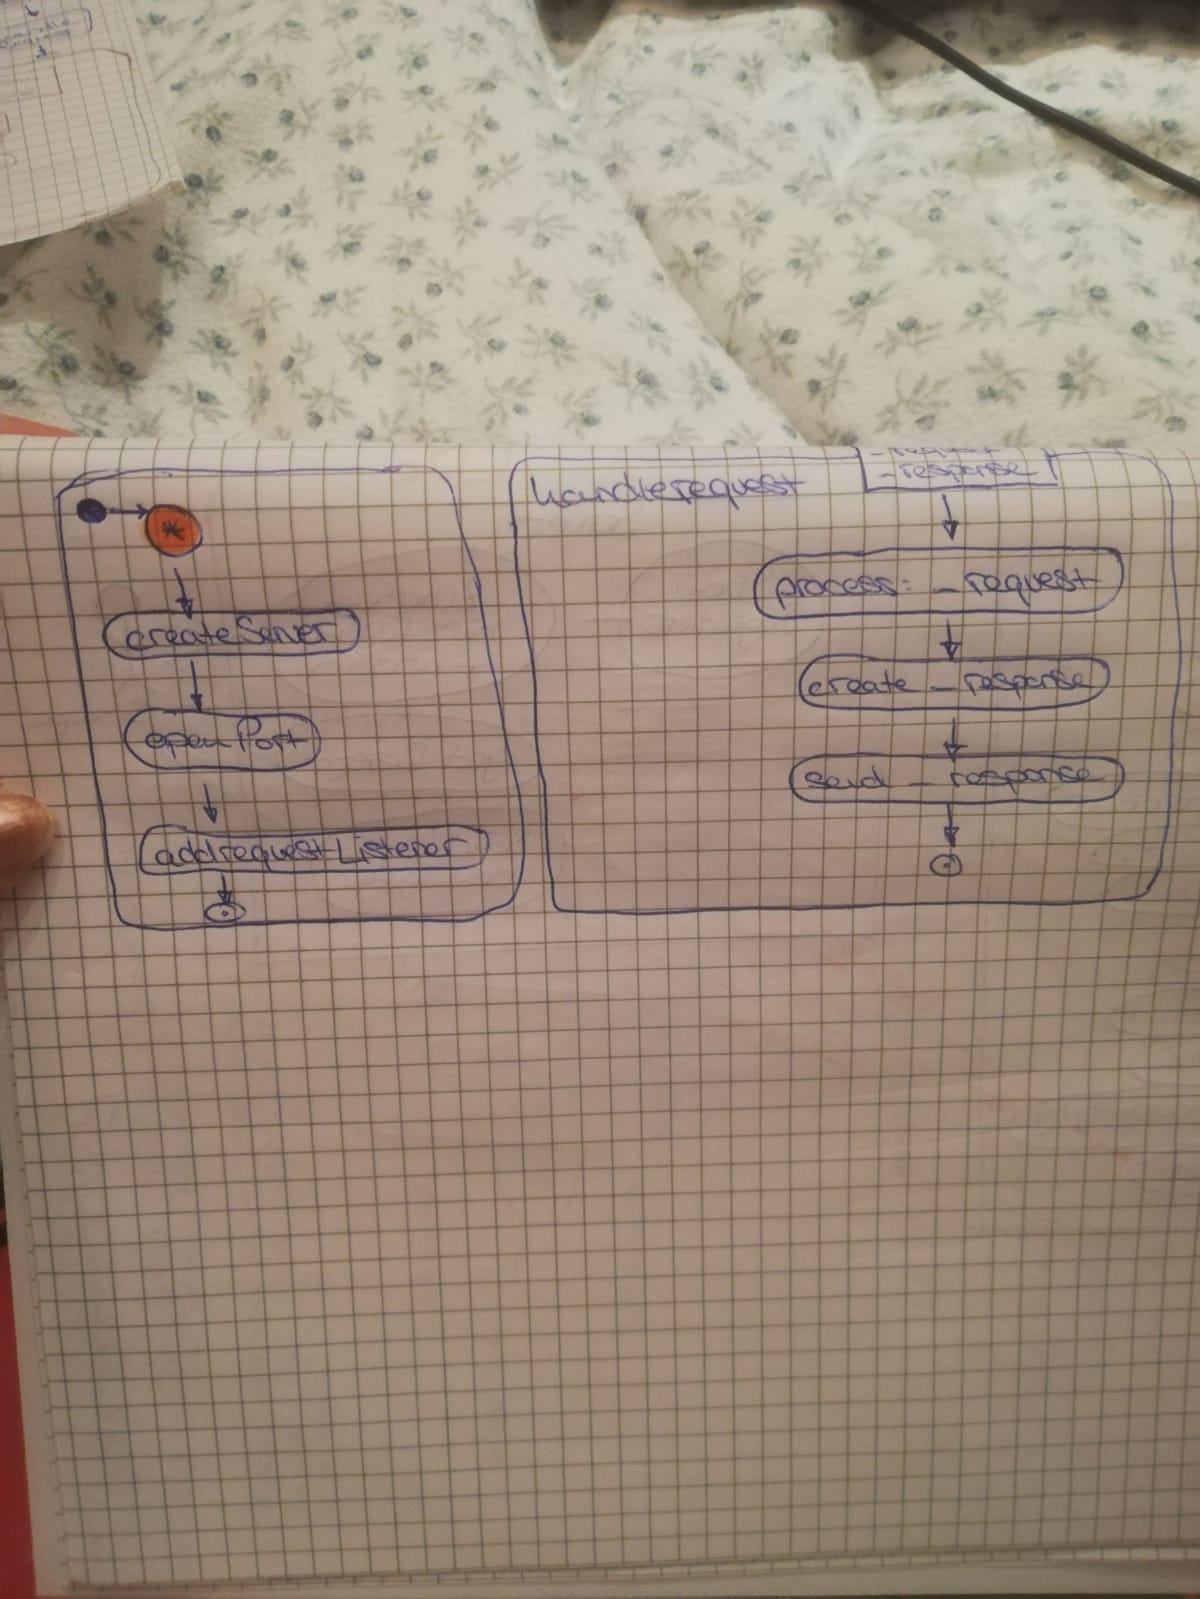 createServer
open Port
addrequestListener
handlerequest
- request
- response
process: _ request
create _ response
send _ response